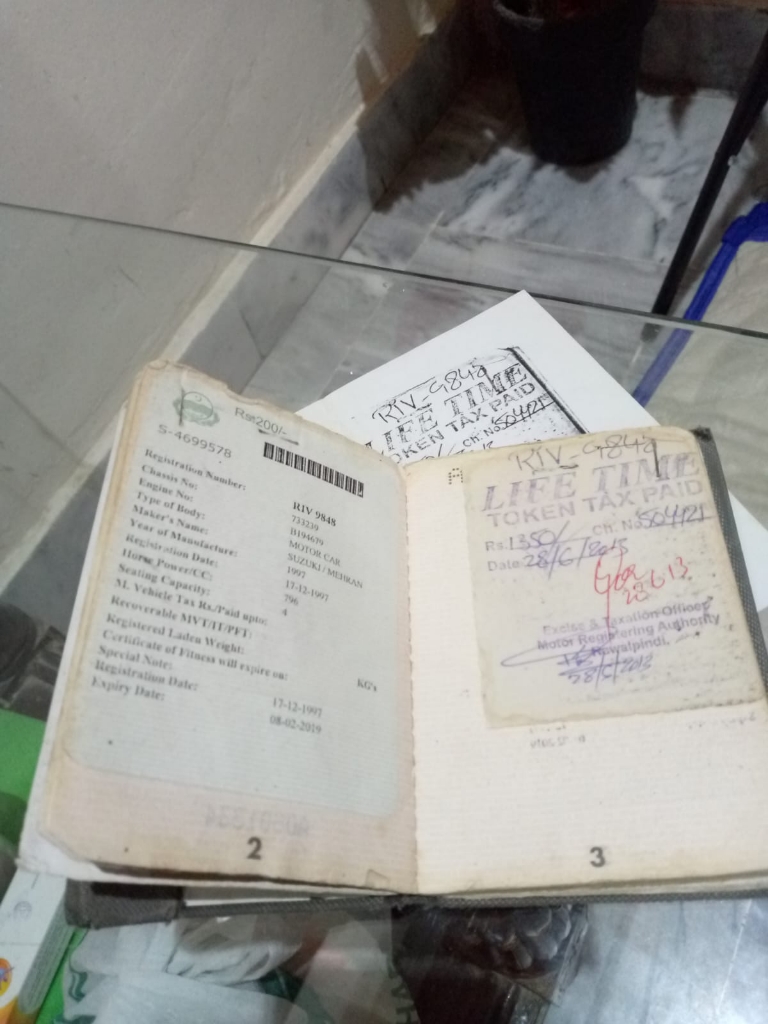 RIV-9848
LIFE TIME
TOKEN TAX PAID
Ch: No 504421
Rs:200/-
S-4699578
Registration Number: RIV 9848
Chassis No: 733239
Engine No: B194679
Type of Body: MOTOR CAR
Maker's Name: SUZUKI / MEHRAN
Year of Manufacture: 1997
Registration Date: 17-12-1997
Horse Power/CC: 796
Seating Capacity: 4
M. Vehicle Tax Rs/Paid upto:
Recoverable MVT/IT/PFT:
Registered Laden Weight: KG's
Certificate of Fitness will expire on:
Special Note:
Registration Date: 17-12-1997
Expiry Date: 08-02-2019
2
A
RIV-9848
LIFE TIME
TOKEN TAX PAID
Rs.1350/ Ch: No 504421
Date 28/6/2013
28613
Excise & Taxation Officer
Motor Registering Authority
Rawalpindi.
28/6/2013
3